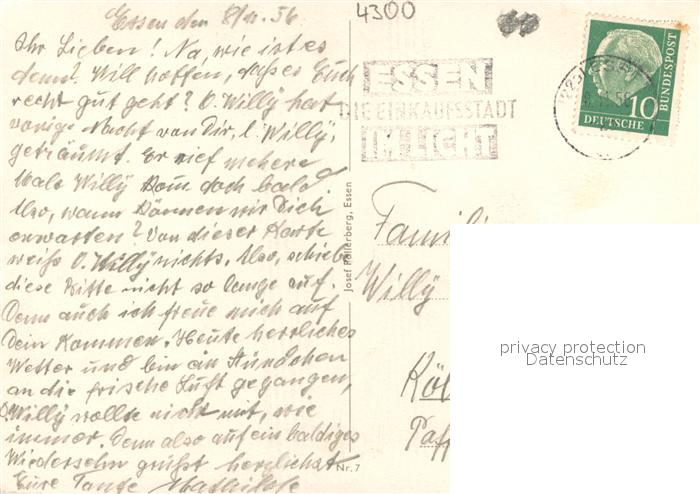 Essen den 8/11. 56
Ihr Lieben! Na, wie ist es
denn? Will hoffen, daß es Euch
recht gut geht? O. Willy hat
vorige Nacht von Dir, l. Willy,
geträumt. Er rief mehere
Male Willy komm doch bald.
Also, wann können wir Dich
erwarten? Von dieser Karte
weiß O. Willy nichts. Also, schieb
diese Bitte nicht so lange auf.
Denn auch ich freue mich auf
Dein Kommen. Heute herrliches
Wetter und bin ein Stündchen
an die frische Luft gegangen,
O. Willy wollte nicht mit, wie
immer. Denn also auf ein baldiges
Wiedersehn grüßt herzlichst
Eure Tante Mathilde
4300
ESSEN
DIE EINKAUFSSTADT
IM LICHT
10
DEUTSCHE
BUNDESPOST
Josef Hallerberg, Essen
Nr. 7
Famili
Willy
Köl
privacy protection
Datenschutz